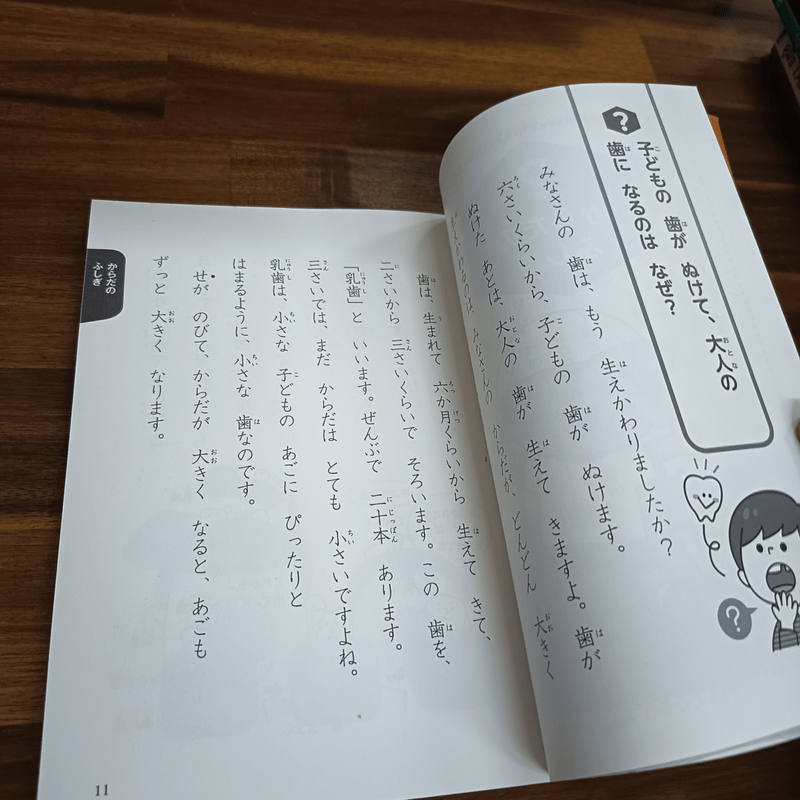 ?
子どもの 歯が ぬけて、大人の
歯に なるのは なぜ?
?
みなさんの 歯は、もう 生えかわりましたか?
六さいくらいから、子どもの 歯が ぬけます。
ぬけた あとは、大人の 歯が 生えて きますよ。歯が
みなさんの からだが、どんどん 大きく
歯は、生まれて 六か月くらいから 生えて きて、
二さいから 三さいくらいで そろいます。この 歯を、
「乳歯」と いいます。ぜんぶで 二十本 あります。
三さいでは、まだ からだは とても 小さいですよね。
乳歯は、小さな 子どもの あごに ぴったりと
はまるように、小さな 歯なのです。
せが のびて、からだが 大きく なると、あごも
ずっと 大きく なります。
からだの
ふしぎ
11